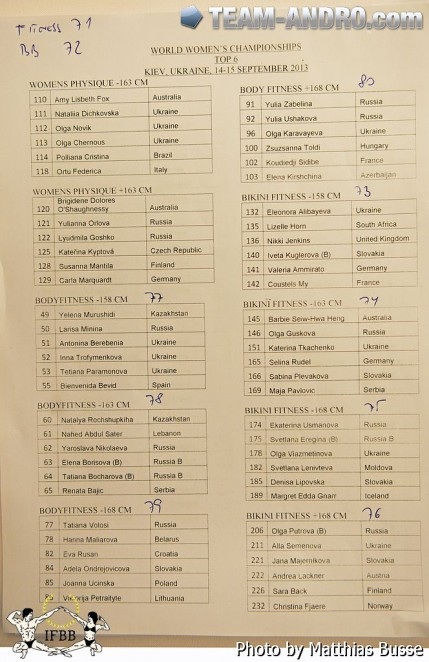 TEAM-ANDRO.com
Fitness 71
BB 72
WORLD WOMEN'S CHAMPIONSHIPS
TOP 6
KIEV, UKRAINE, 14-15 SEPTEMBER 2013
WOMENS PHYSIQUE -163 CM
110 Amy Lisbeth Fox Australia
111 Nataliia Dichkovska Ukraine
112 Olga Novik Ukraine
113 Olga Chernous Ukraine
114 Polliana Cristina Brazil
118 Ortu Federica Italy
WOMENS PHYSIQUE +163 CM
120 Brigidene Dolores O'Shaughnessy Australia
121 Yulianna Orlova Russia
122 Lyudmila Goshko Russia
125 Kateřina Kyptová Czech Republic
128 Susanna Mantila Finland
129 Carla Marquardt Germany
BODYFITNESS -158 CM 77
49 Yelena Murushidi Kazakhstan
50 Larisa Minina Russia
51 Antonina Berebenia Ukraine
52 Inna Trofymenkova Ukraine
53 Tetiana Paramonova Ukraine
55 Bienvenida Bevid Spain
BODYFITNESS -163 CM 78
60 Natalya Rochshupkiha Kazakhstan
61 Nahed Abdul Sater Lebanon
62 Yaroslava Nikolaeva Russia
63 Elena Borisova (B) Russia B
64 Tatiana Bocharova (B) Russia B
65 Renata Bajic Serbia
BODYFITNESS -168 CM 79
77 Tatiana Volosi Russia
78 Hanna Maliarova Belarus
82 Eva Rusan Croatia
84 Adela Ondrejovicova Slovakia
85 Joanna Ucinska Poland
Viktorija Petraityte Lithuania
IFBB
BODY FITNESS +168 CM 80
91 Yulia Zabelina Russia
92 Yulia Ushakova Russia
96 Olga Karavayeva Ukraine
100 Zsuzsanna Toldi Hungary
102 Koudiedji Sidibe France
103 Elena Kirshchina Azerbaijan
BIKINI FITNESS -158 CM 73
132 Eleonora Alibayeva Ukraine
135 Lizelle Horn South Africa
136 Nikki Jenkins United Kingdom
140 Iveta Kuglerova (B) Slovakia
141 Valeria Ammirato Germany
142 Coustels My France
BIKINI FITNESS -163 CM 74
145 Barbie Seiw-Hwa Heng Australia
146 Olga Guskova Russia
151 Katerina Tkachenko Ukraine
165 Selina Rudel Germany
166 Sabina Plevakova Slovakia
169 Maja Pavlovic Serbia
BIKINI FITNESS -168 CM 75
174 Ekaterina Usmanova Russia
175 Svetlana Eregina (B) Russia B
178 Olga Viazmetinova Ukraine
182 Svetlana Lenivteva Moldova
185 Denisa Lipovska Slovakia
189 Margret Edda Gnarr Iceland
BIKINI FITNESS +168 CM 76
206 Olga Putrova (B) Russia
211 Alla Semenova Ukraine
221 Jana Majernikova Slovakia
222 Andrea Lackner Austria
226 Sara Back Finland
232 Christina Fjaere Norway
Photo by Matthias Busse